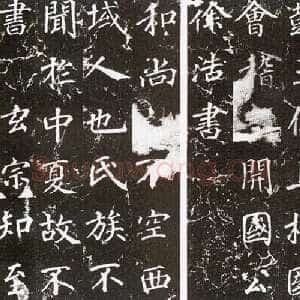 上柱國
會稽開國公
徐浩書
和尚不空西
域人也氏族不
聞於中夏故不
書玄宗知至